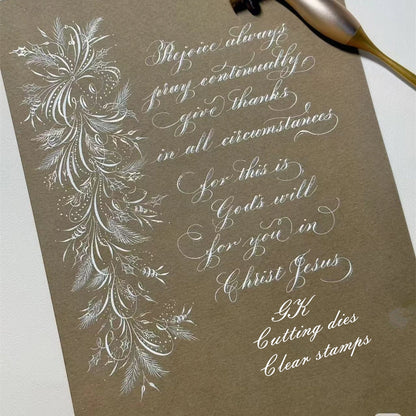 Rejoice always
pray continually
give thanks
in all circumstances
for this is
God's will
for you in
Christ Jesus
GK
Cutting dies
Clear stamps